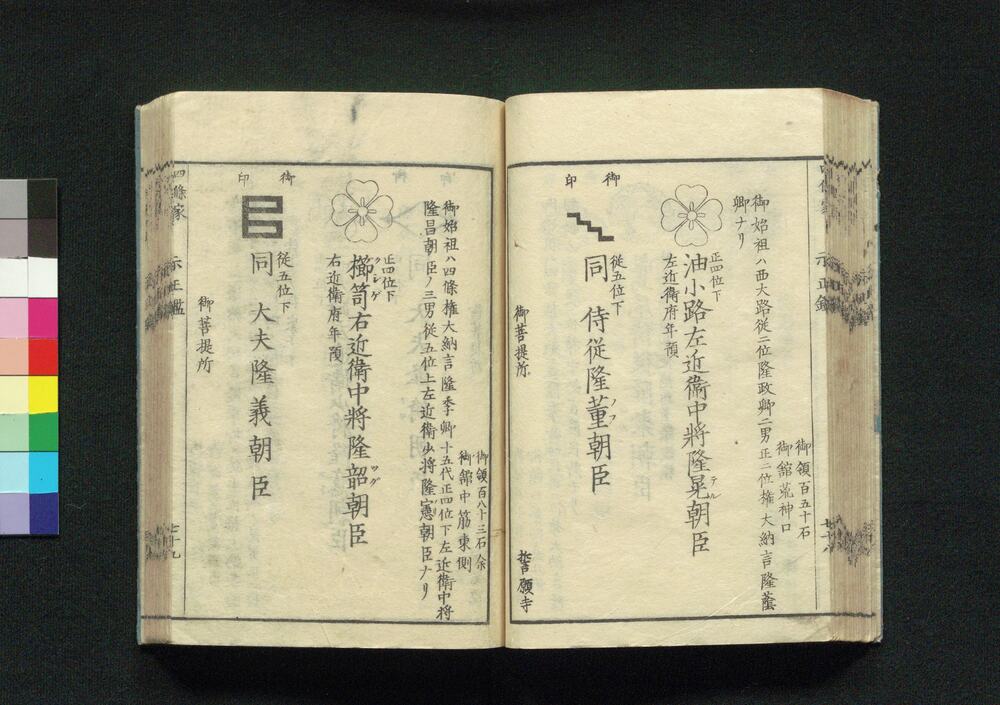 御領百五十石
御舘荒神口
御始祖ハ西大路従二位隆政卿二男正二位権大納言隆蔭
卿ナリ
正四位下
油小路左近衛中将隆晃朝臣
テル
左近衛府年預
御印
従五位下
同侍従隆董朝臣
ノブ
御菩提所
誓願寺
御領百八十三石余
御舘中筋東側
御始祖ハ四條権大納言隆季卿十五代正四位下左近衛中将
隆昌朝臣ノ三男従五位上左近衛少将隆憲朝臣ナリ
正四位下
櫛笥右近衛中将隆韶朝臣
クシゲ
ツグ
右近衛府年預
御印
従五位下
同大夫隆義朝臣
御菩提所
四條家
示正鑑
七十九